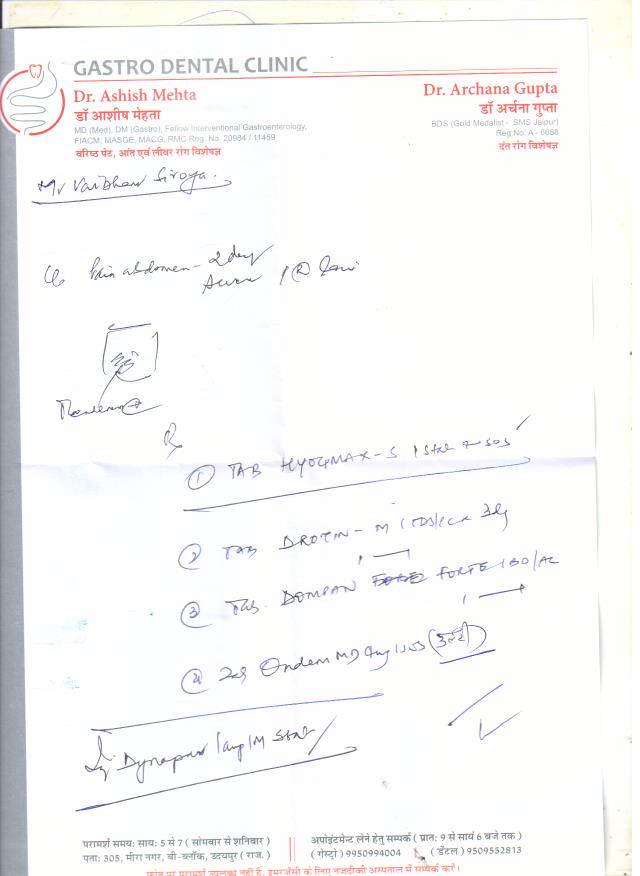 GASTRO DENTAL CLINIC
Dr. Ashish Mehta
डॉ आशीष मेहता
MD (Med), DM (Gastro), Fellow Interventional Gastroenterology,
FIACM, MASGE, MACG, RMC Reg. No. 20984 / 11459
वरिष्ठ पेट, आंत एवं लीवर रोग विशेषज्ञ
Dr. Archana Gupta
डॉ अर्चना गुप्ता
BDS (Gold Medalist - SMS Jaipur)
Reg No: A - 6658
दंत रोग विशेषज्ञ
Mr Vardhaw Siroya.
Pain abdomen - 2 day
Rx
① TAB HYOCIMAX-S 1 Stat SOS
② TAB DROTIN-M 1 TDS
③ TAB. DOMPAN FORTE 1 BD/AC
④ Ondem MD 4mg 1 SOS (उल्टी)
Dynapar 1 amp IM Stat
परामर्श समय: साय: 5 से 7 ( सोमवार से शनिवार )
पता: 305, मीरा नगर, बी-ब्लॉक, उदयपुर ( राज. )
अपोइंटमेन्ट लेने हेतु सम्पर्क ( प्रात: 9 से सायं 6 बजे तक )
( गेस्ट्रो ) 9950994004 ( डेंटल ) 9509552813
फोन पर परामर्श उपलब्ध नहीं है, इमरजेंसी के लिए नजदीकी अस्पताल में सम्पर्क करें।